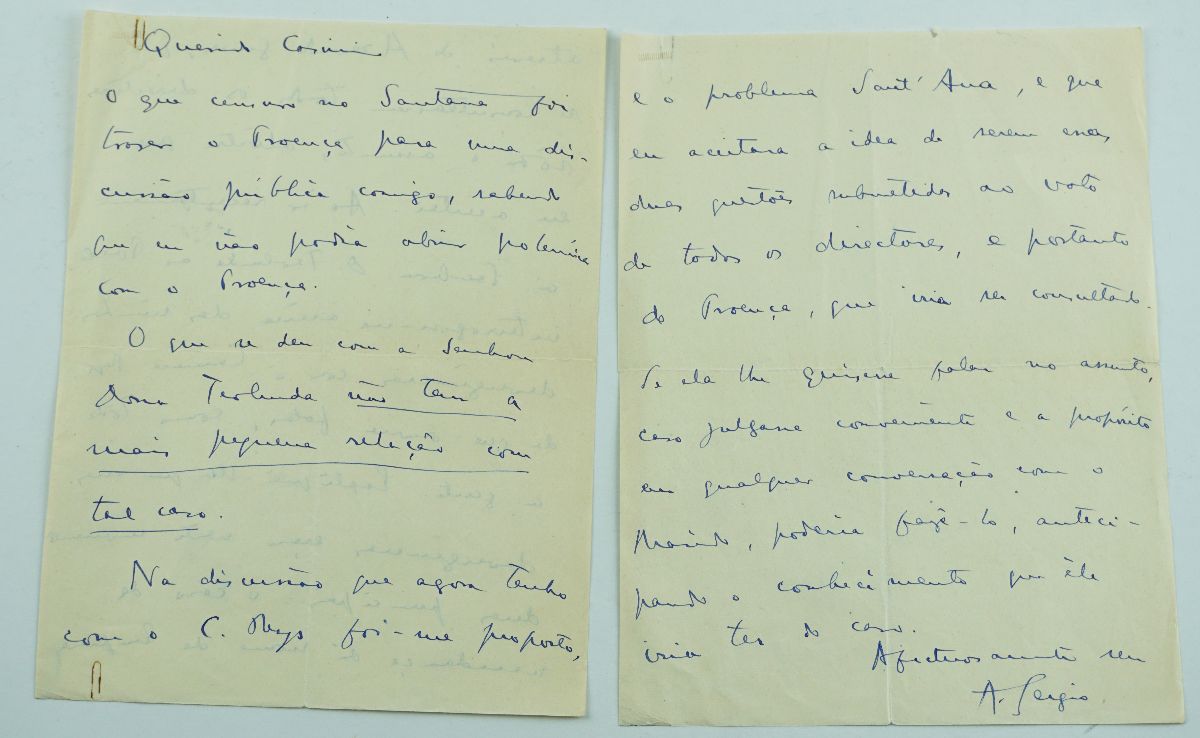 Querido Casimiro
O que censuro no Santana foi
trazer o Proença para uma dis-
cussão pública comigo, sabendo
que eu não podia abrir polemica
com o Proença.
O que se deu com a Senhora
Dona Teolinda não tem a
mais pequena relação com
tal caso.
Na discussão que agora tenho
com o C. foi-me proposto,
e o problema Sant'Ana, e que
eu aceitara a idea de serem essas
duas questões submetidas ao voto
de todos os directores, e portanto
do Proença, que iria ser consultado.
Se ela lhe quisesse falar no assunto,
caso julgasse conveniente e a propósito
em qualquer conversação com o
Marido, poderia fazê-lo, anteci-
pando o conhecimento que êle
iria ter do caso.
Afectuosamente seu
A. Sergio